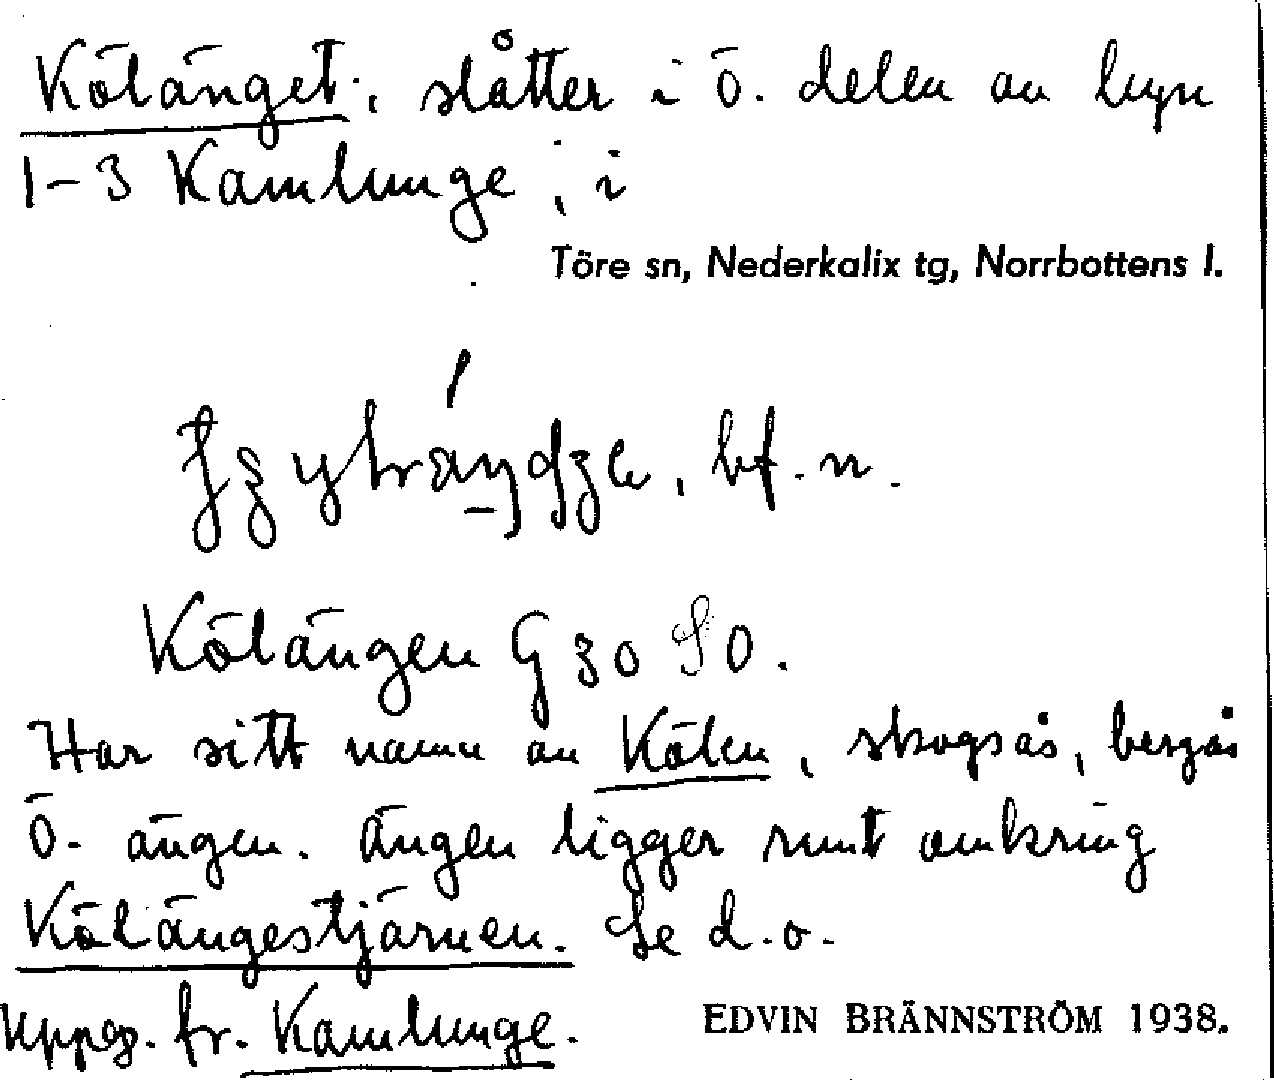 Kölänget, slåtter i ö. delen av byn
1-3 Kamlunge, i
Töre sn, Nederkalix tg, Norrbottens l.
bf. n.
Kölängen G 30 SO.
Har sitt namn av Kölen, skogsås, bergås
Ö. ängen. Ängen ligger runt omkring
Kölängestjärnen. Se d.o.
Uppg. fr. Kamlunge.
EDVIN BRÄNNSTRÖM 1938.